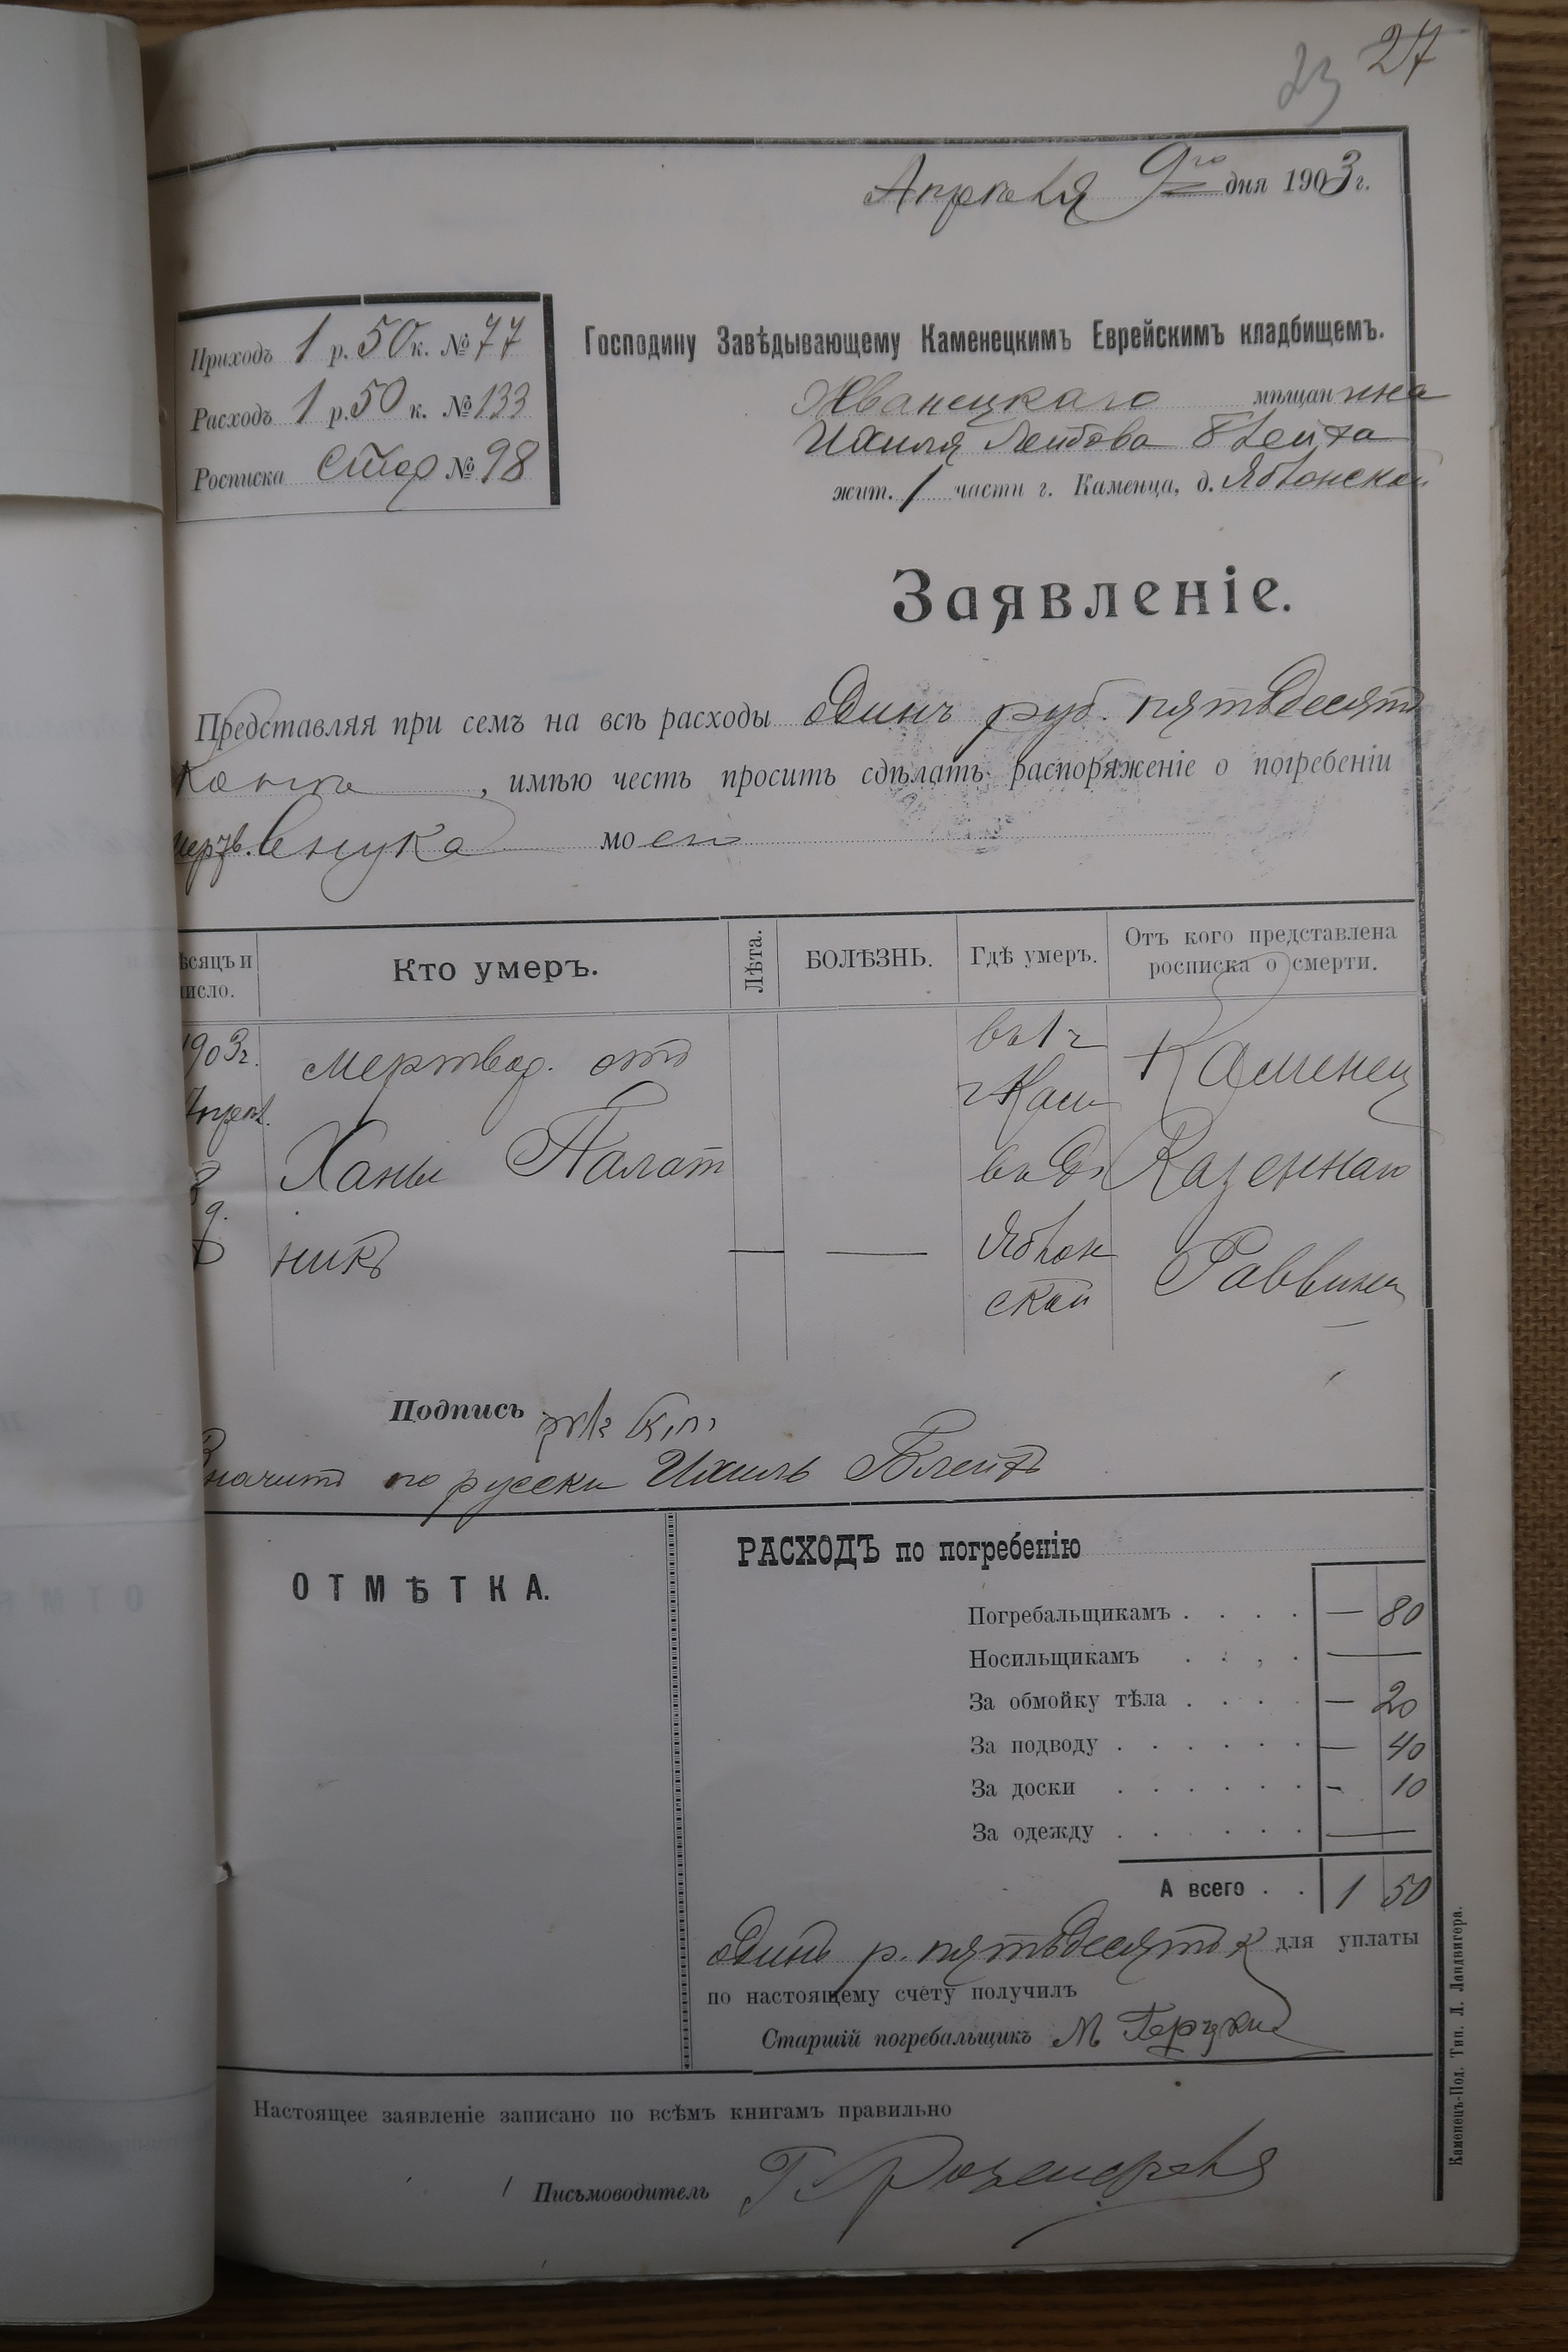 23 27
Апрѣля 9го дня 1903 г.
Приходъ 1 р. 50 к. № 77
Расходъ 1 р. 50 к. № 133
Росписка № 98
Господину Завѣдывающему Каменецкимъ Еврейскимъ кладбищемъ.
Жванецкаго мѣщанина
Ихиля Лейбова Блейха
жит. 1 части г. Каменца, д. Яблонской
Заявленіе.
Представляя при семъ на всѣ расходы одинъ руб. пятьдесятъ
коп. , имѣю честь просить сдѣлать распоряженіе о погребеніи
внука моего
ѣсяцъ и
исло.
Кто умеръ.
Лѣта.
БОЛѢЗНЬ.
Гдѣ умеръ.
Отъ кого представлена
росписка о смерти.
903 г. мертвор. отъ въ 1 ч Каменец
г Кам
Ханы Палат въ д. Казеннаго
никъ — — Яблон Раввина
ской
Подпись
Значитъ по русски Ихиль Блейхъ
ОТМѢТКА.
РАСХОДЪ по погребенію
Погребальщикамъ . . . . — 80
Носильщикамъ . . , . —
За обмойку тѣла . . . . — 20
За подводу . . . . . . — 40
За доски . . . . . . - 10
За одежду . . . . . . —
А всего . . 1 50
Одинъ р. пятьдесятъ к для уплаты
по настоящему счету получилъ
Старшій погребальщикъ М
Настоящее заявленіе записано по всѣмъ книгамъ правильно
Письмоводитель Г.
Каменецъ-Под. Тип. Л. Ландвигера.